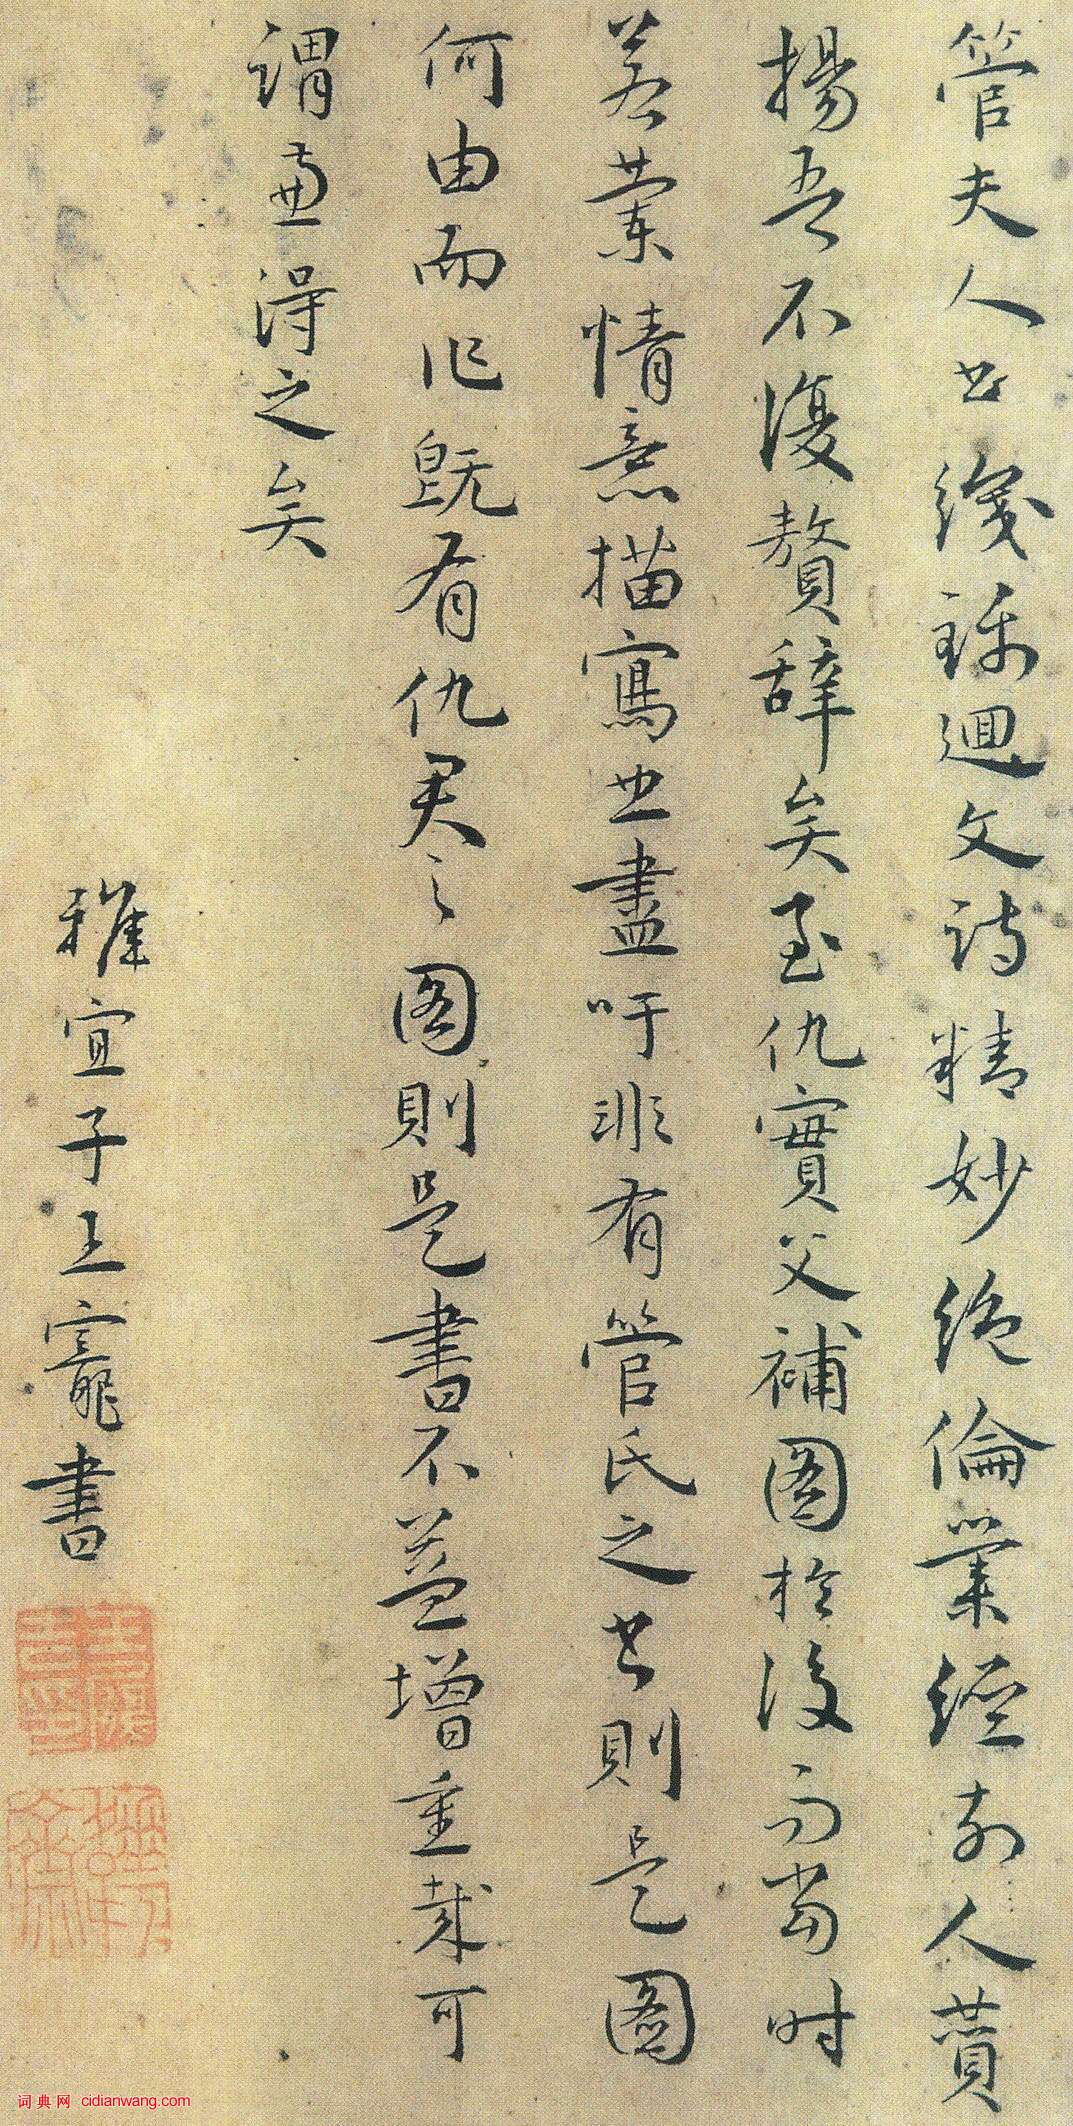 管夫人書織錦迴文詩精妙絕倫業經前人贊
揚吾不復贅辭矣至仇實父補圖於後而當時
若蘭情意描寫也盡吁非有管氏之書則是圖
何由而作既有仇君之圖則是書不益增重哉可
謂兼得之矣
雅宜子王寵書
词典网 cidianwang.com